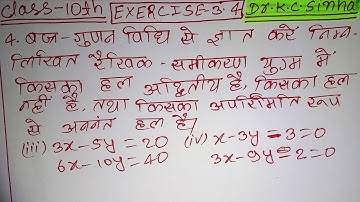 Class-10th EXERCISE-3.4 Dr.K.C.Sinha
4. बज्र-गुणन विधि से ज्ञात करें निम्न-
लिखित रैखिक-समीकरण युग्म में
किसका हल अद्वितीय है, किसका हल
नहीं है, तथा किसका अपरिमित रूप
से अनंत हल है।
(iii) 3x-5y=20 (iv) x-3y-3=0
6x-10y=40 3x-9y-2=0